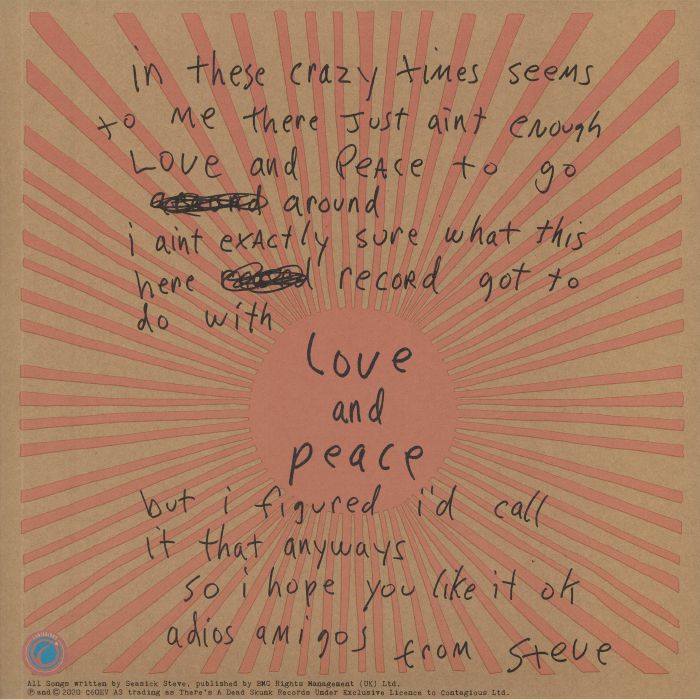 in these crazy times seems
to me there just aint enough
LOVE and PEACE to go
around
i aint exactly sure what this
here record got to
do with
Love
and
peace
but i figured i'd call
it that anyways
so i hope you like it ok
adios amigos from Steve
All Songs written by Seasick Steve, published by BMG Rights Management (UK) Ltd.
℗ and © 2020 C60EV AS trading as There's A Dead Skunk Records Under Exclusive Licence to Contagious Ltd.